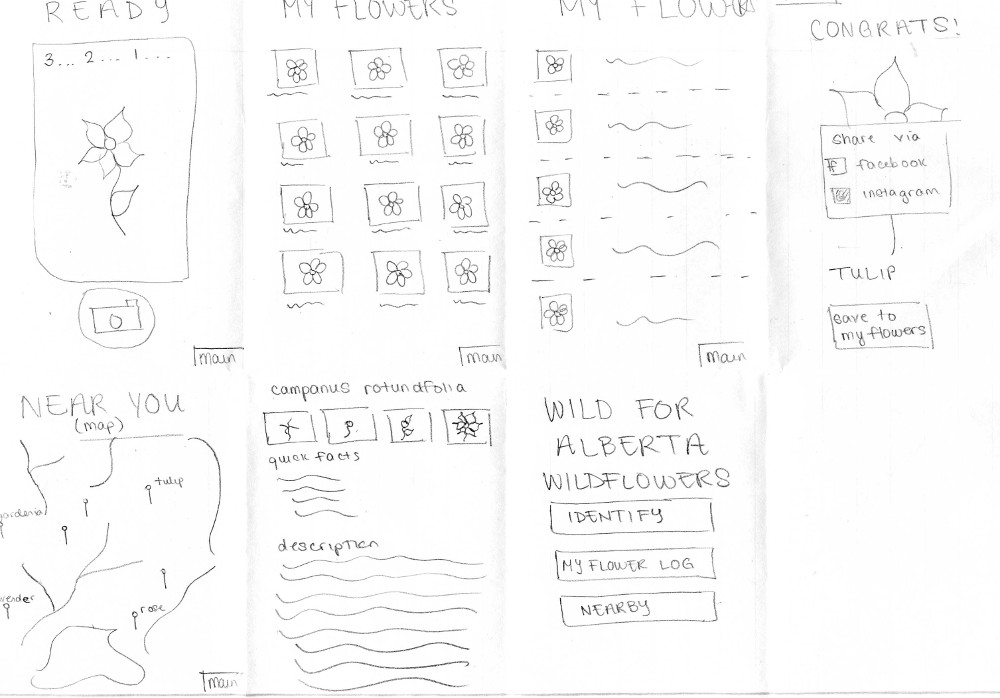 READY
3... 2... 1...
main
MY FLOWERS
main
MY FLOWERS
main
CONGRATS!
share via
f facebook
instagram
TULIP
save to
my flowers
NEAR YOU
(map)
tulip
gardenia
rose
main
campanus rotundfolia
quick facts
description
WILD FOR
ALBERTA
WILDFLOWERS
IDENTIFY
MY FLOWER LOG
NEARBY